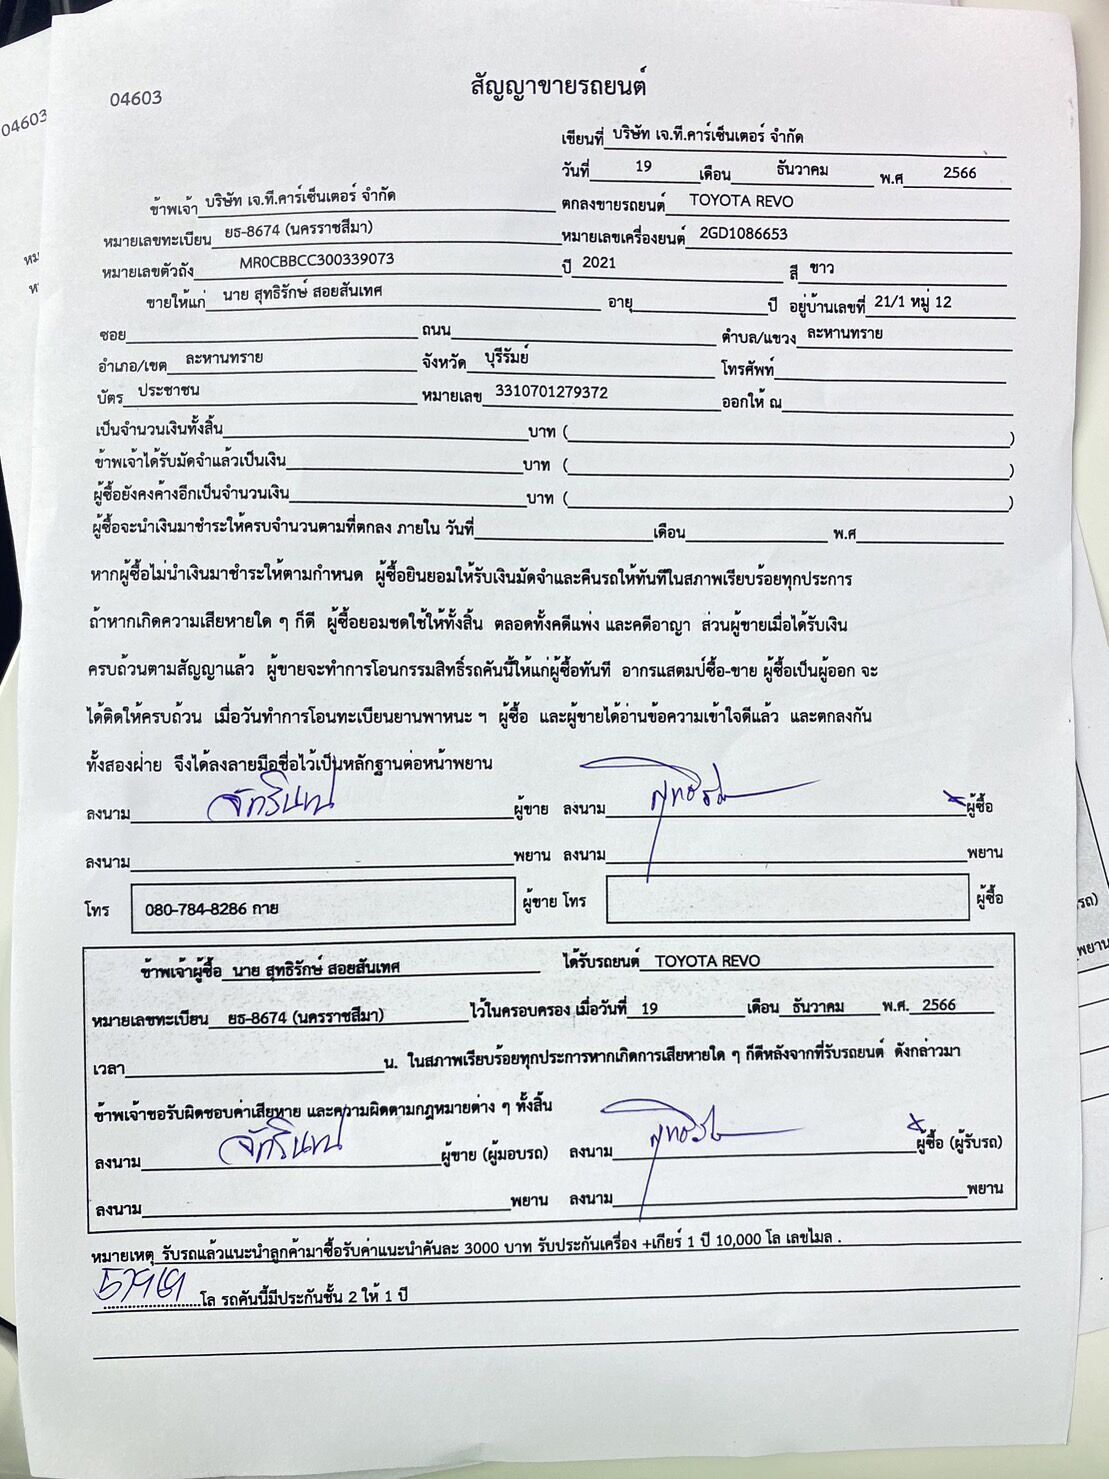 04603
สัญญาขายรถยนต์
เขียนที่ บริษัท เจ.ที.คาร์เซ็นเตอร์ จำกัด
วันที่ 19 เดือน ธันวาคม พ.ศ 2566
ข้าพเจ้า บริษัท เจ.ที.คาร์เซ็นเตอร์ จำกัด ตกลงขายรถยนต์ TOYOTA REVO
หมายเลขทะเบียน ยธ-8674 (นครราชสีมา) หมายเลขเครื่องยนต์ 2GD1086653
หมายเลขตัวถัง MR0CBBCC300339073 ปี 2021 สี ขาว
ขายให้แก่ นาย สุทธิรักษ์ สอยสันเทศ อายุ ปี อยู่บ้านเลขที่ 21/1 หมู่ 12
ซอย ถนน ตำบล/แขวง ละหานทราย
อำเภอ/เขต ละหานทราย จังหวัด บุรีรัมย์ โทรศัพท์
บัตร ประชาชน หมายเลข 3310701279372 ออกให้ ณ
เป็นจำนวนเงินทั้งสิ้น บาท ( )
ข้าพเจ้าได้รับมัดจำแล้วเป็นเงิน บาท ( )
ผู้ซื้อยังคงค้างอีกเป็นจำนวนเงิน บาท ( )
ผู้ซื้อจะนำเงินมาชำระให้ครบจำนวนตามที่ตกลง ภายใน วันที่ เดือน พ.ศ
หากผู้ซื้อไม่นำเงินมาชำระให้ตามกำหนด ผู้ซื้อยินยอมให้รับเงินมัดจำและคืนรถให้ทันทีในสภาพเรียบร้อยทุกประการ
ถ้าหากเกิดความเสียหายใด ๆ ก็ดี ผู้ซื้อยอมชดใช้ให้ทั้งสิ้น ตลอดทั้งคดีแพ่ง และคดีอาญา ส่วนผู้ขายเมื่อได้รับเงิน
ครบถ้วนตามสัญญาแล้ว ผู้ขายจะทำการโอนกรรมสิทธิ์รถคันนี้ให้แก่ผู้ซื้อทันที อากรแสตมป์ซื้อ-ขาย ผู้ซื้อเป็นผู้ออก จะ
ได้ติดให้ครบถ้วน เมื่อวันทำการโอนทะเบียนยานพาหนะ ฯ ผู้ซื้อ และผู้ขายได้อ่านข้อความเข้าใจดีแล้ว และตกลงกัน
ทั้งสองฝ่าย จึงได้ลงลายมือชื่อไว้เป็นหลักฐานต่อหน้าพยาน
ลงนาม ผู้ขาย ลงนาม ผู้ซื้อ
ลงนาม พยาน ลงนาม พยาน
โทร 080-784-8286 กาย ผู้ขาย โทร ผู้ซื้อ
ข้าพเจ้าผู้ซื้อ นาย สุทธิรักษ์ สอยสันเทศ ได้รับรถยนต์ TOYOTA REVO
หมายเลขทะเบียน ยธ-8674 (นครราชสีมา) ไว้ในครอบครอง เมื่อวันที่ 19 เดือน ธันวาคม พ.ศ. 2566
เวลา น. ในสภาพเรียบร้อยทุกประการหากเกิดการเสียหายใด ๆ ก็ดีหลังจากที่รับรถยนต์ ดังกล่าวมา
ข้าพเจ้าขอรับผิดชอบค่าเสียหาย และความผิดตามกฎหมายต่าง ๆ ทั้งสิ้น
ลงนาม ผู้ขาย (ผู้มอบรถ) ลงนาม ผู้ซื้อ (ผู้รับรถ)
ลงนาม พยาน ลงนาม พยาน
หมายเหตุ รับรถแล้วแนะนำลูกค้ามาซื้อรับค่าแนะนำคันละ 3000 บาท รับประกันเครื่อง +เกียร์ 1 ปี 10,000 โล เลขไมล .
โล รถคันนี้มีประกันชั้น 2 ให้ 1 ปี